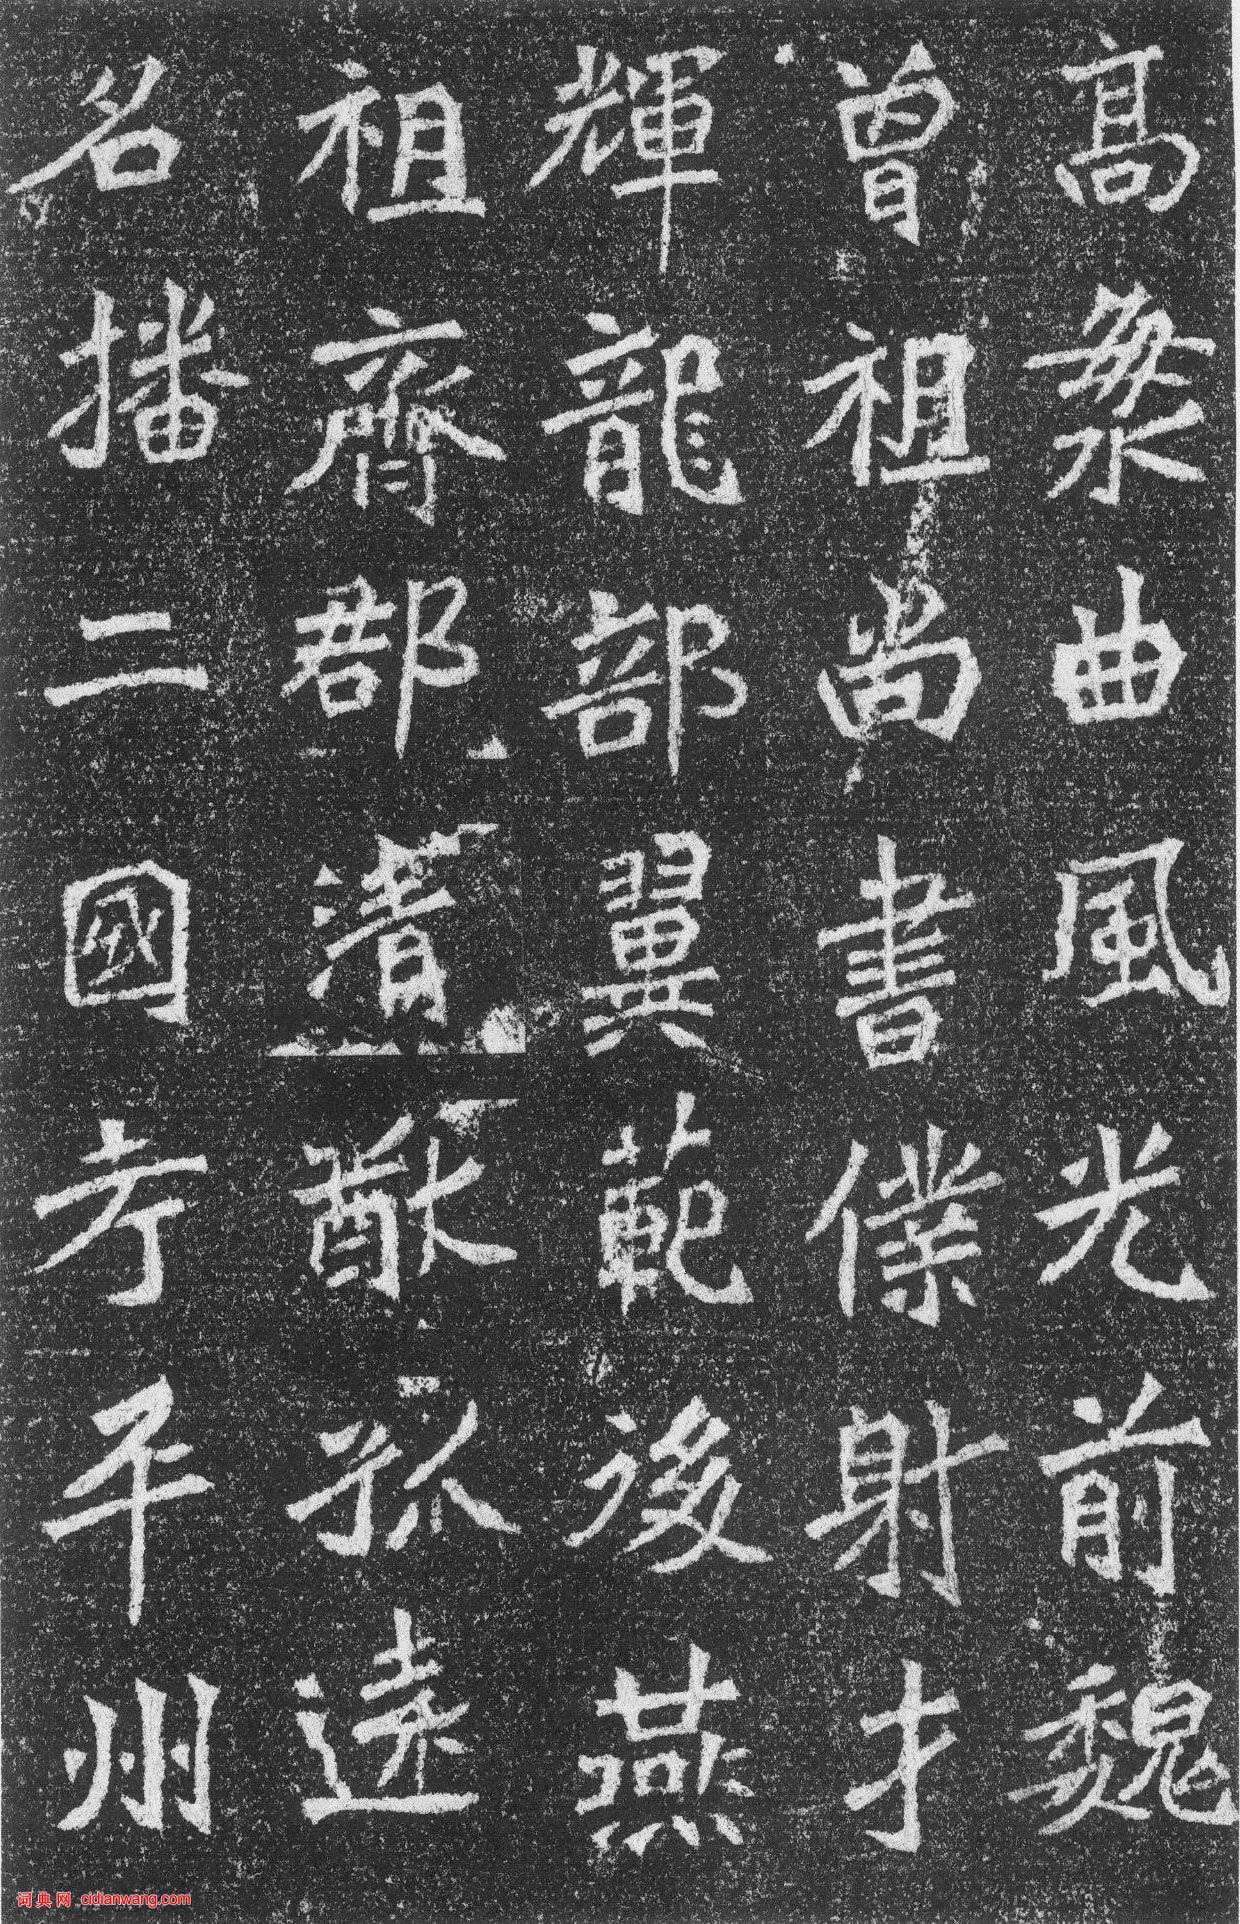 高曲風光前魏
曾祖尚書僕射才
輝龍部翼範後燕
祖齊郡清猷孤遠
名播二國考平州
词典网 cidianwang.com